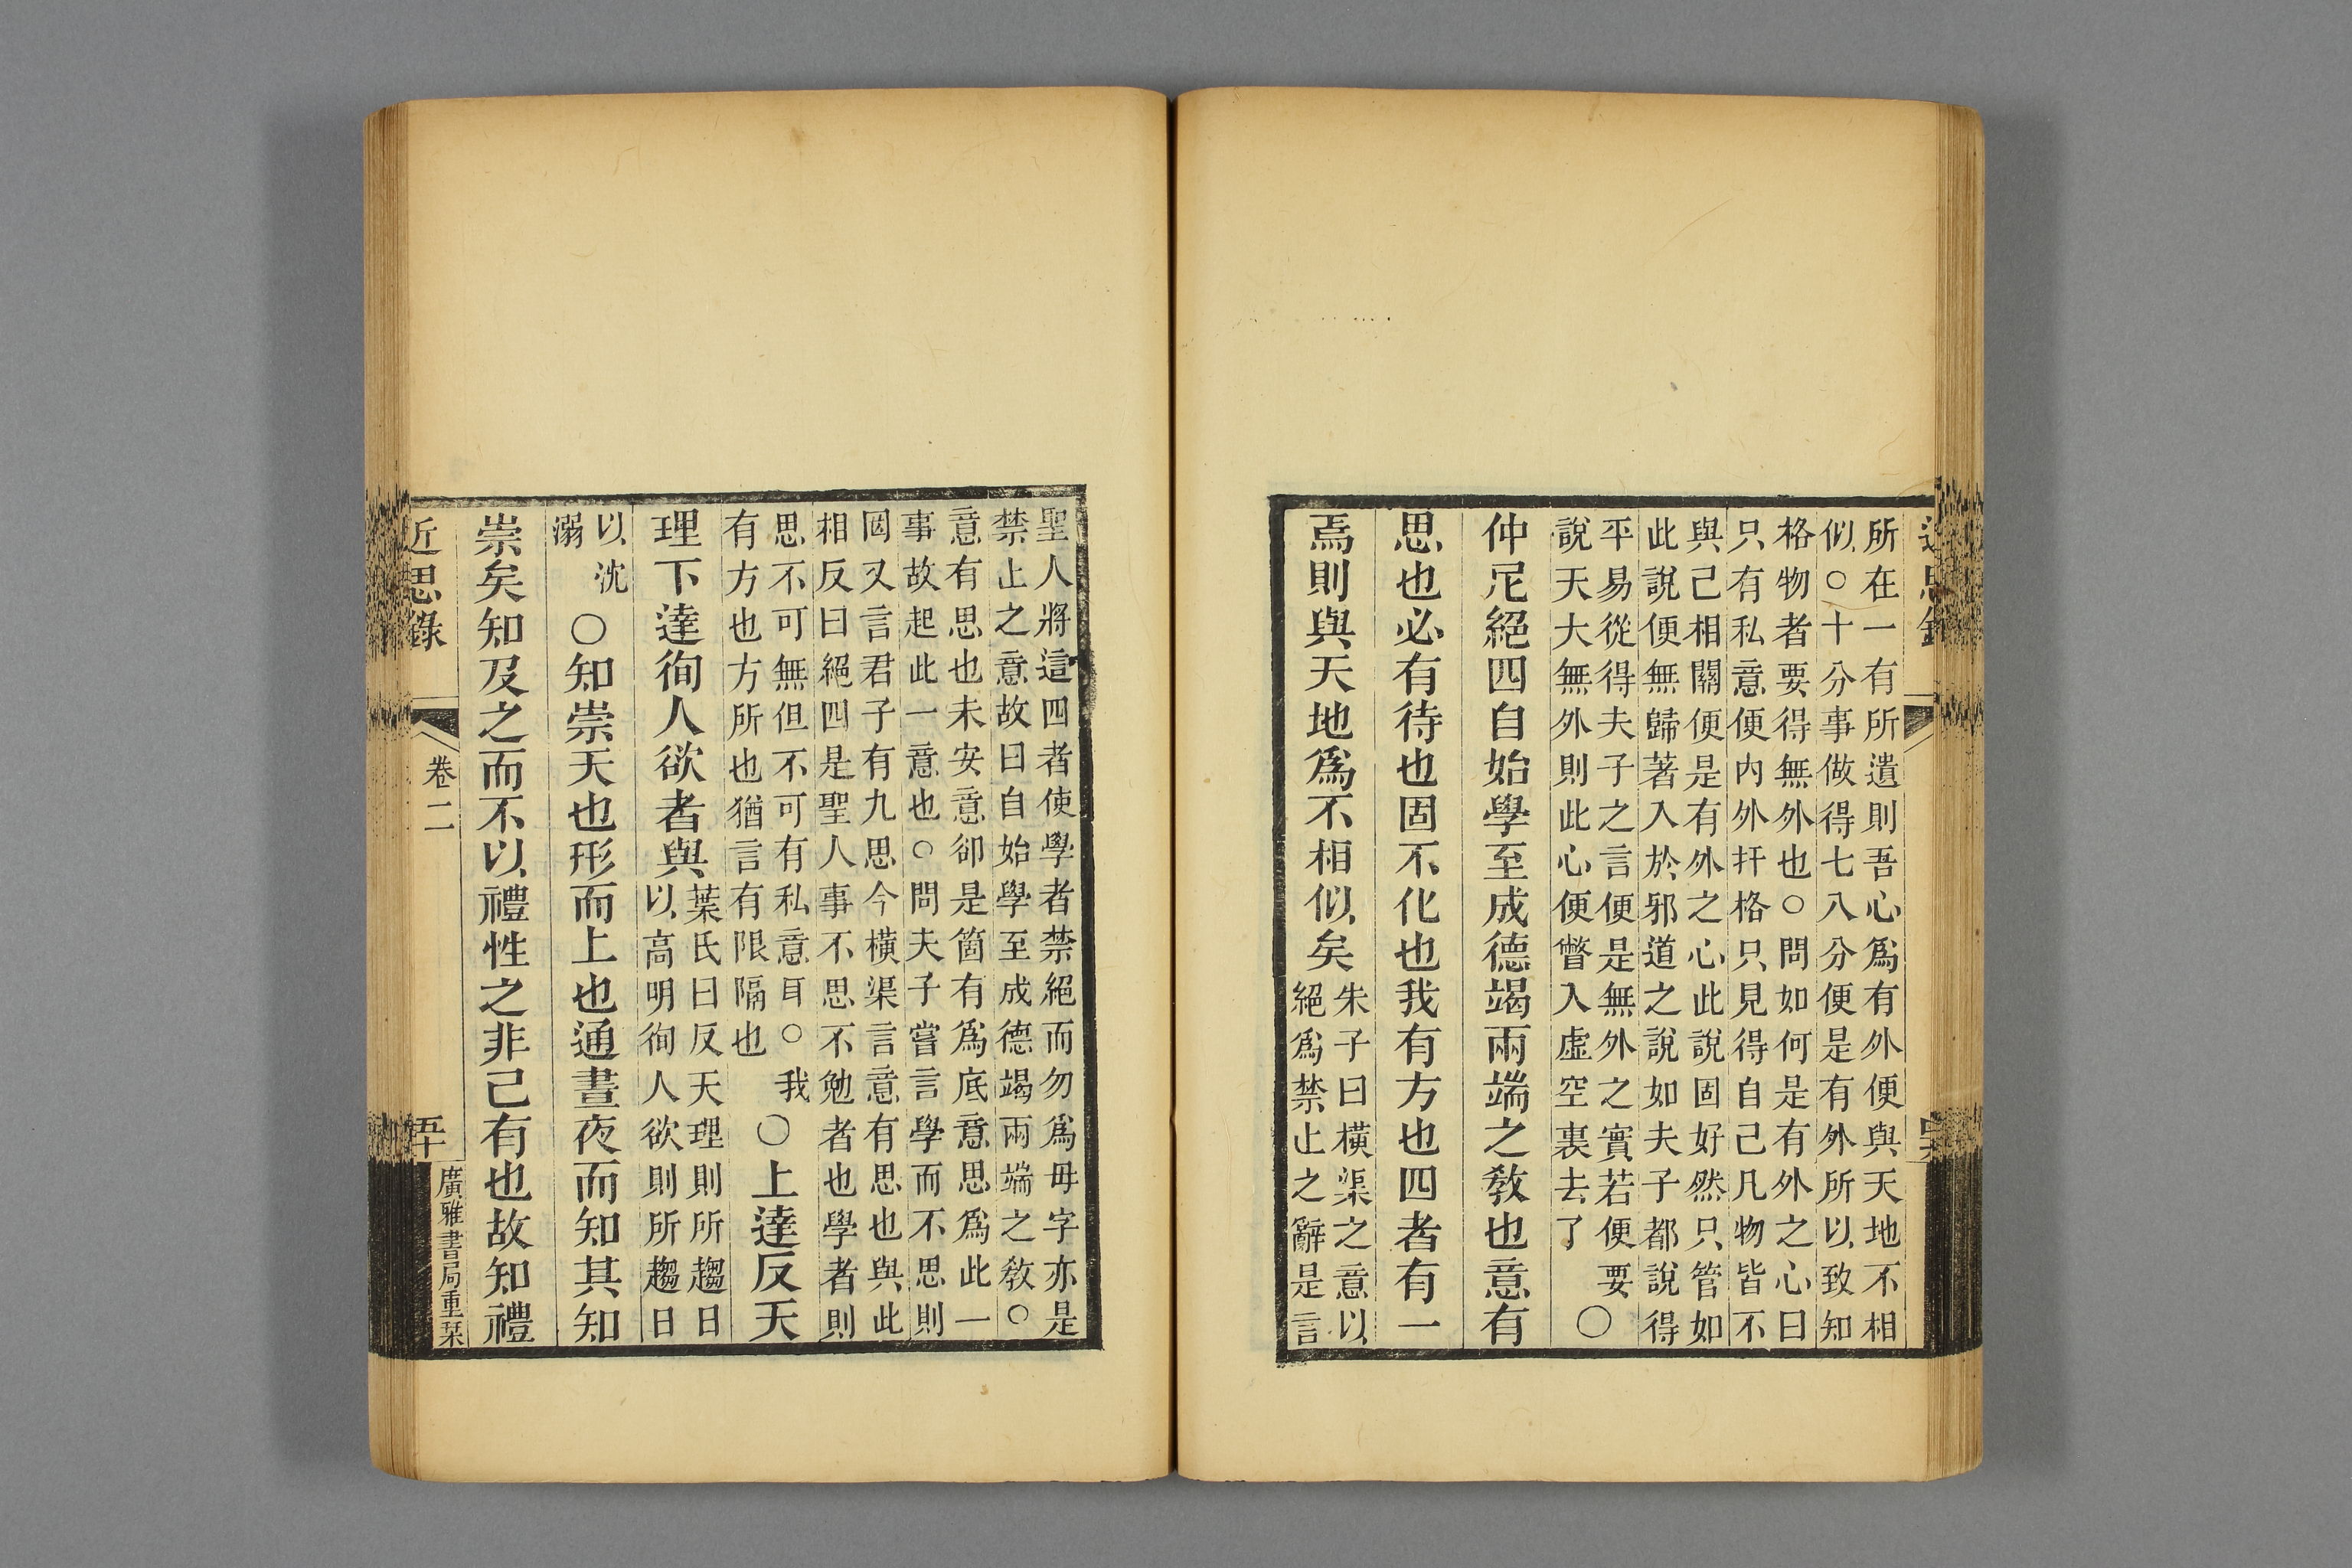 所在一有所遺則吾心爲有外便與天地不相
似○十分事做得七八分便是有外所以致知
格物者要得無外也○問如何是有外之心曰
只有私意便內外扞格只見得自己凡物皆不
與己相關便是有外之心此說固好然只管如
此說便無歸著入於邪道之說如夫子都說得
平易從得夫子之言便是無外之實若便要
說天大無外則此心便瞥入虛空裏去了
○
仲尼絕四自始學至成德竭兩端之敎也意有
思也必有待也固不化也我有方也四者有一
焉則與天地爲不相似矣
朱子曰橫渠之意以
絕爲禁止之辭是言
聖人將這四者使學者禁絕而勿爲毋字亦是
禁止之意故曰自始學至成德竭兩端之敎○
意有思也未安意卻是箇有爲底意思爲此一
事故起此一意也○問夫子嘗言學而不思則
罔又言君子有九思今橫渠言意有思也與此
相反曰絕四是聖人事不思不勉者也學者則
思不可無但不可有私意耳○我
有方也方所也猶言有限隔也
○上達反天
理下達徇人欲者與
葉氏曰反天理則所趨日
以高明徇人欲則所趨日
以沈
溺
○知崇天也形而上也通晝夜而知其知
崇矣知及之而不以禮性之非己有也故知禮
近思錄
卷二
五十
廣雅書局重栞